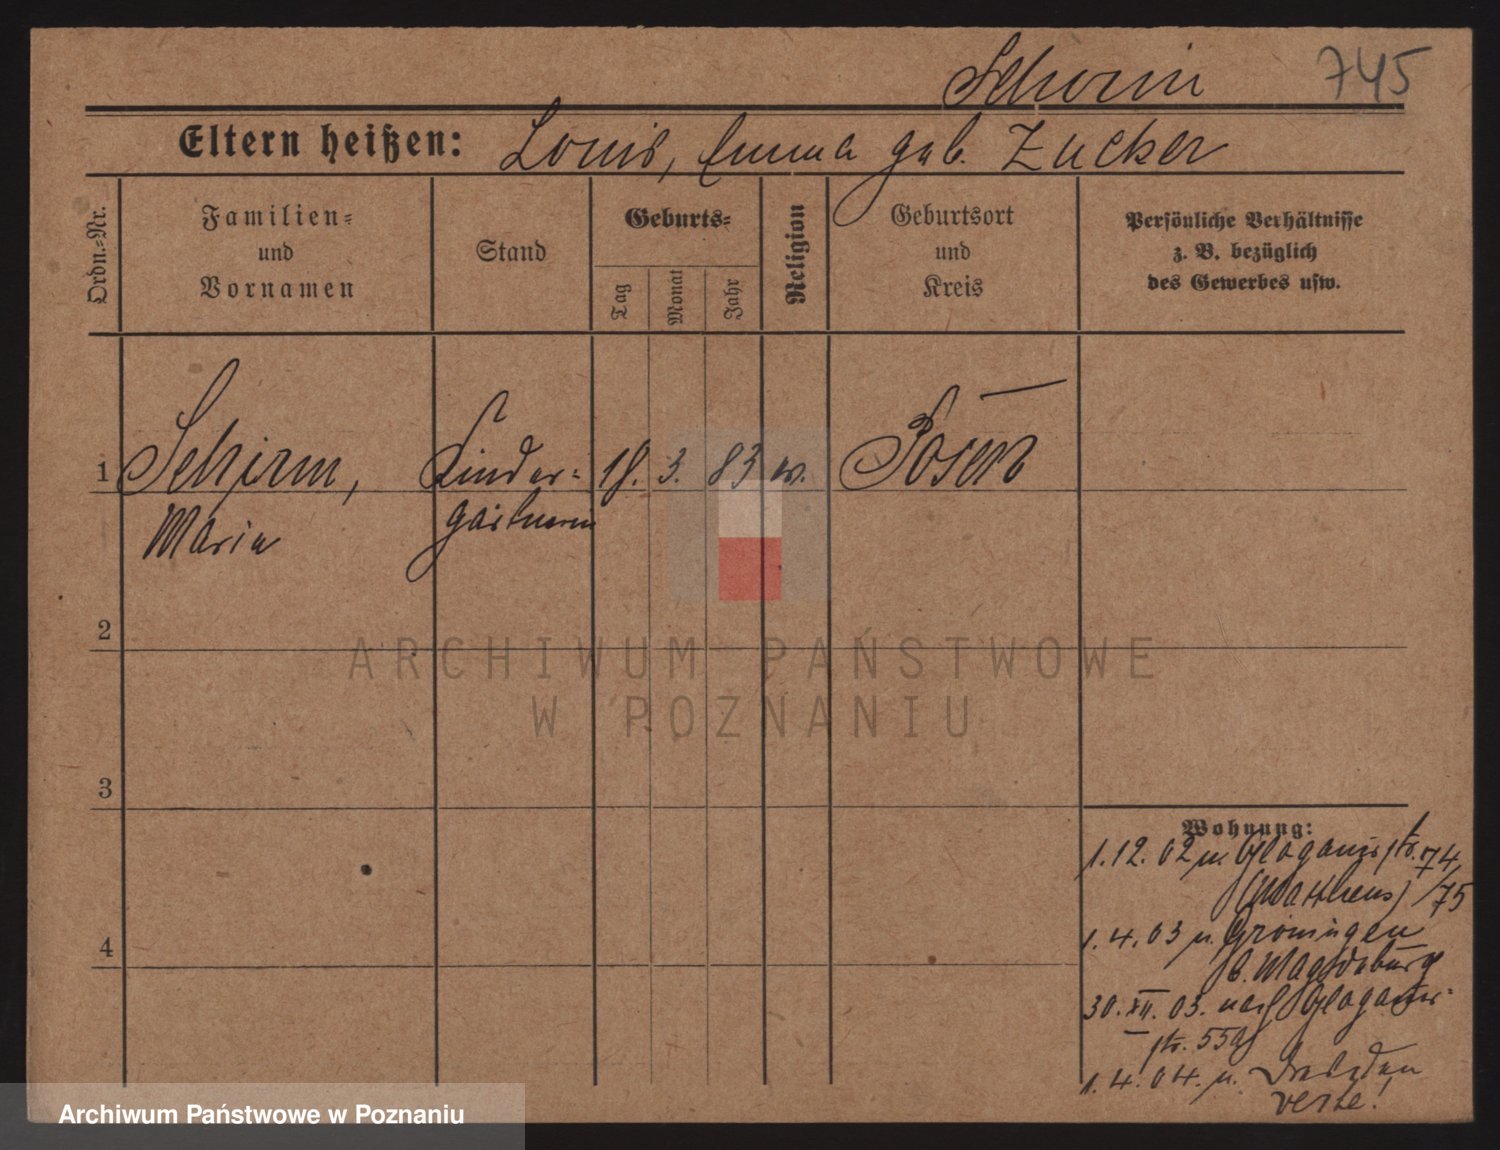 Schirm
745
Eltern heißen: Louis, Emma geb. Zucker
Ordn.=Nr.
Familien=
und
Vornamen
Stand
Geburts=
Tag
Monat
Jahr
Religion
Geburtsort
und
Kreis
Persönliche Verhältnisse
z. B. bezüglich
des Gewerbes usw.
1 Schirm, Kinder= 18. 3. 83 w. Posen
Maria gärtnerin
2
ARCHIWUM PAŃSTWOWE
W POZNANIU
3
4
Wohnung:
1.12.02 n. Glogauerstr. 74/75
(Mattheus)
1.4.03 n. Gröningen
b. Magdeburg
30.XII.03. nach Glogauer=
str. 55a
1.4.04. n. Dresden
verz.!
Archiwum Państwowe w Poznaniu